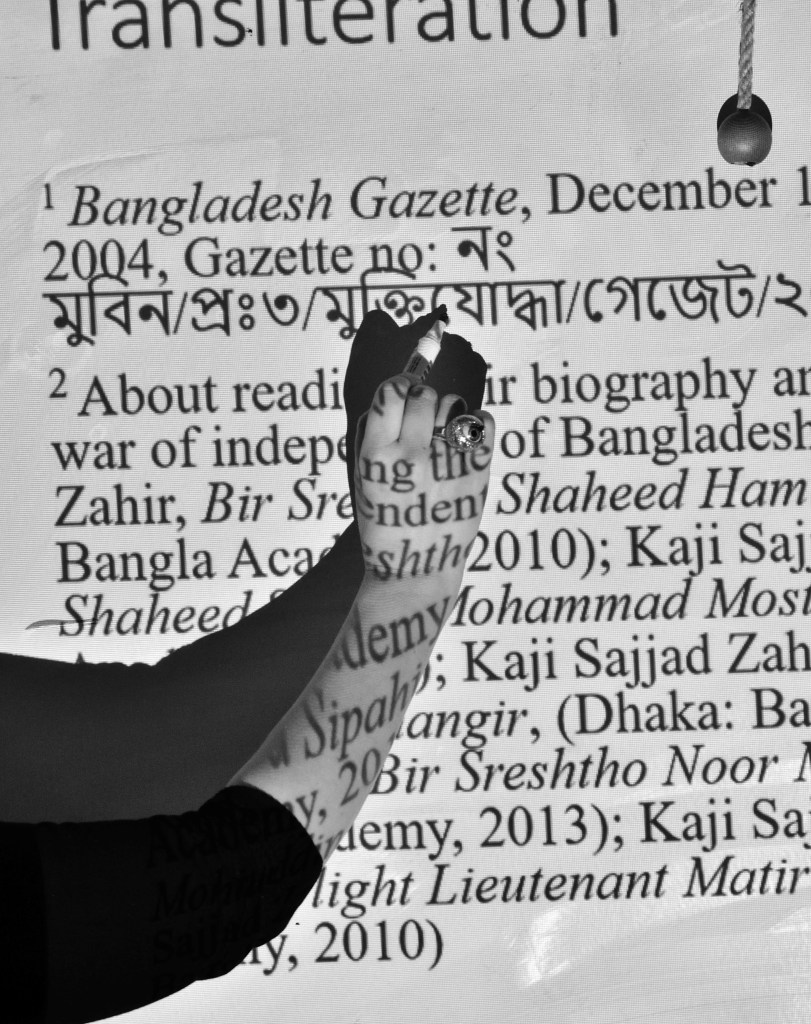 Transliteration
1 Bangladesh Gazette, December 1
2004, Gazette no: নং
মুবিন/প্রঃ৩/মুক্তিযোদ্ধা/গেজেট/২
2 About reading their biography an
war of independent of Bangladesh
Zahir, Bir Sreshtho Shaheed Ham
Bangla Academy, 2010); Kaji Sajj
Shaheed Sipahi Mohammad Most
Academy, 20 ); Kaji Sajjad Zah
angir, (Dhaka: Ba
Sajjad Bir Sreshtho Noor M
demy, 2013); Kaji Sa
light Lieutenant Matir
my, 2010)